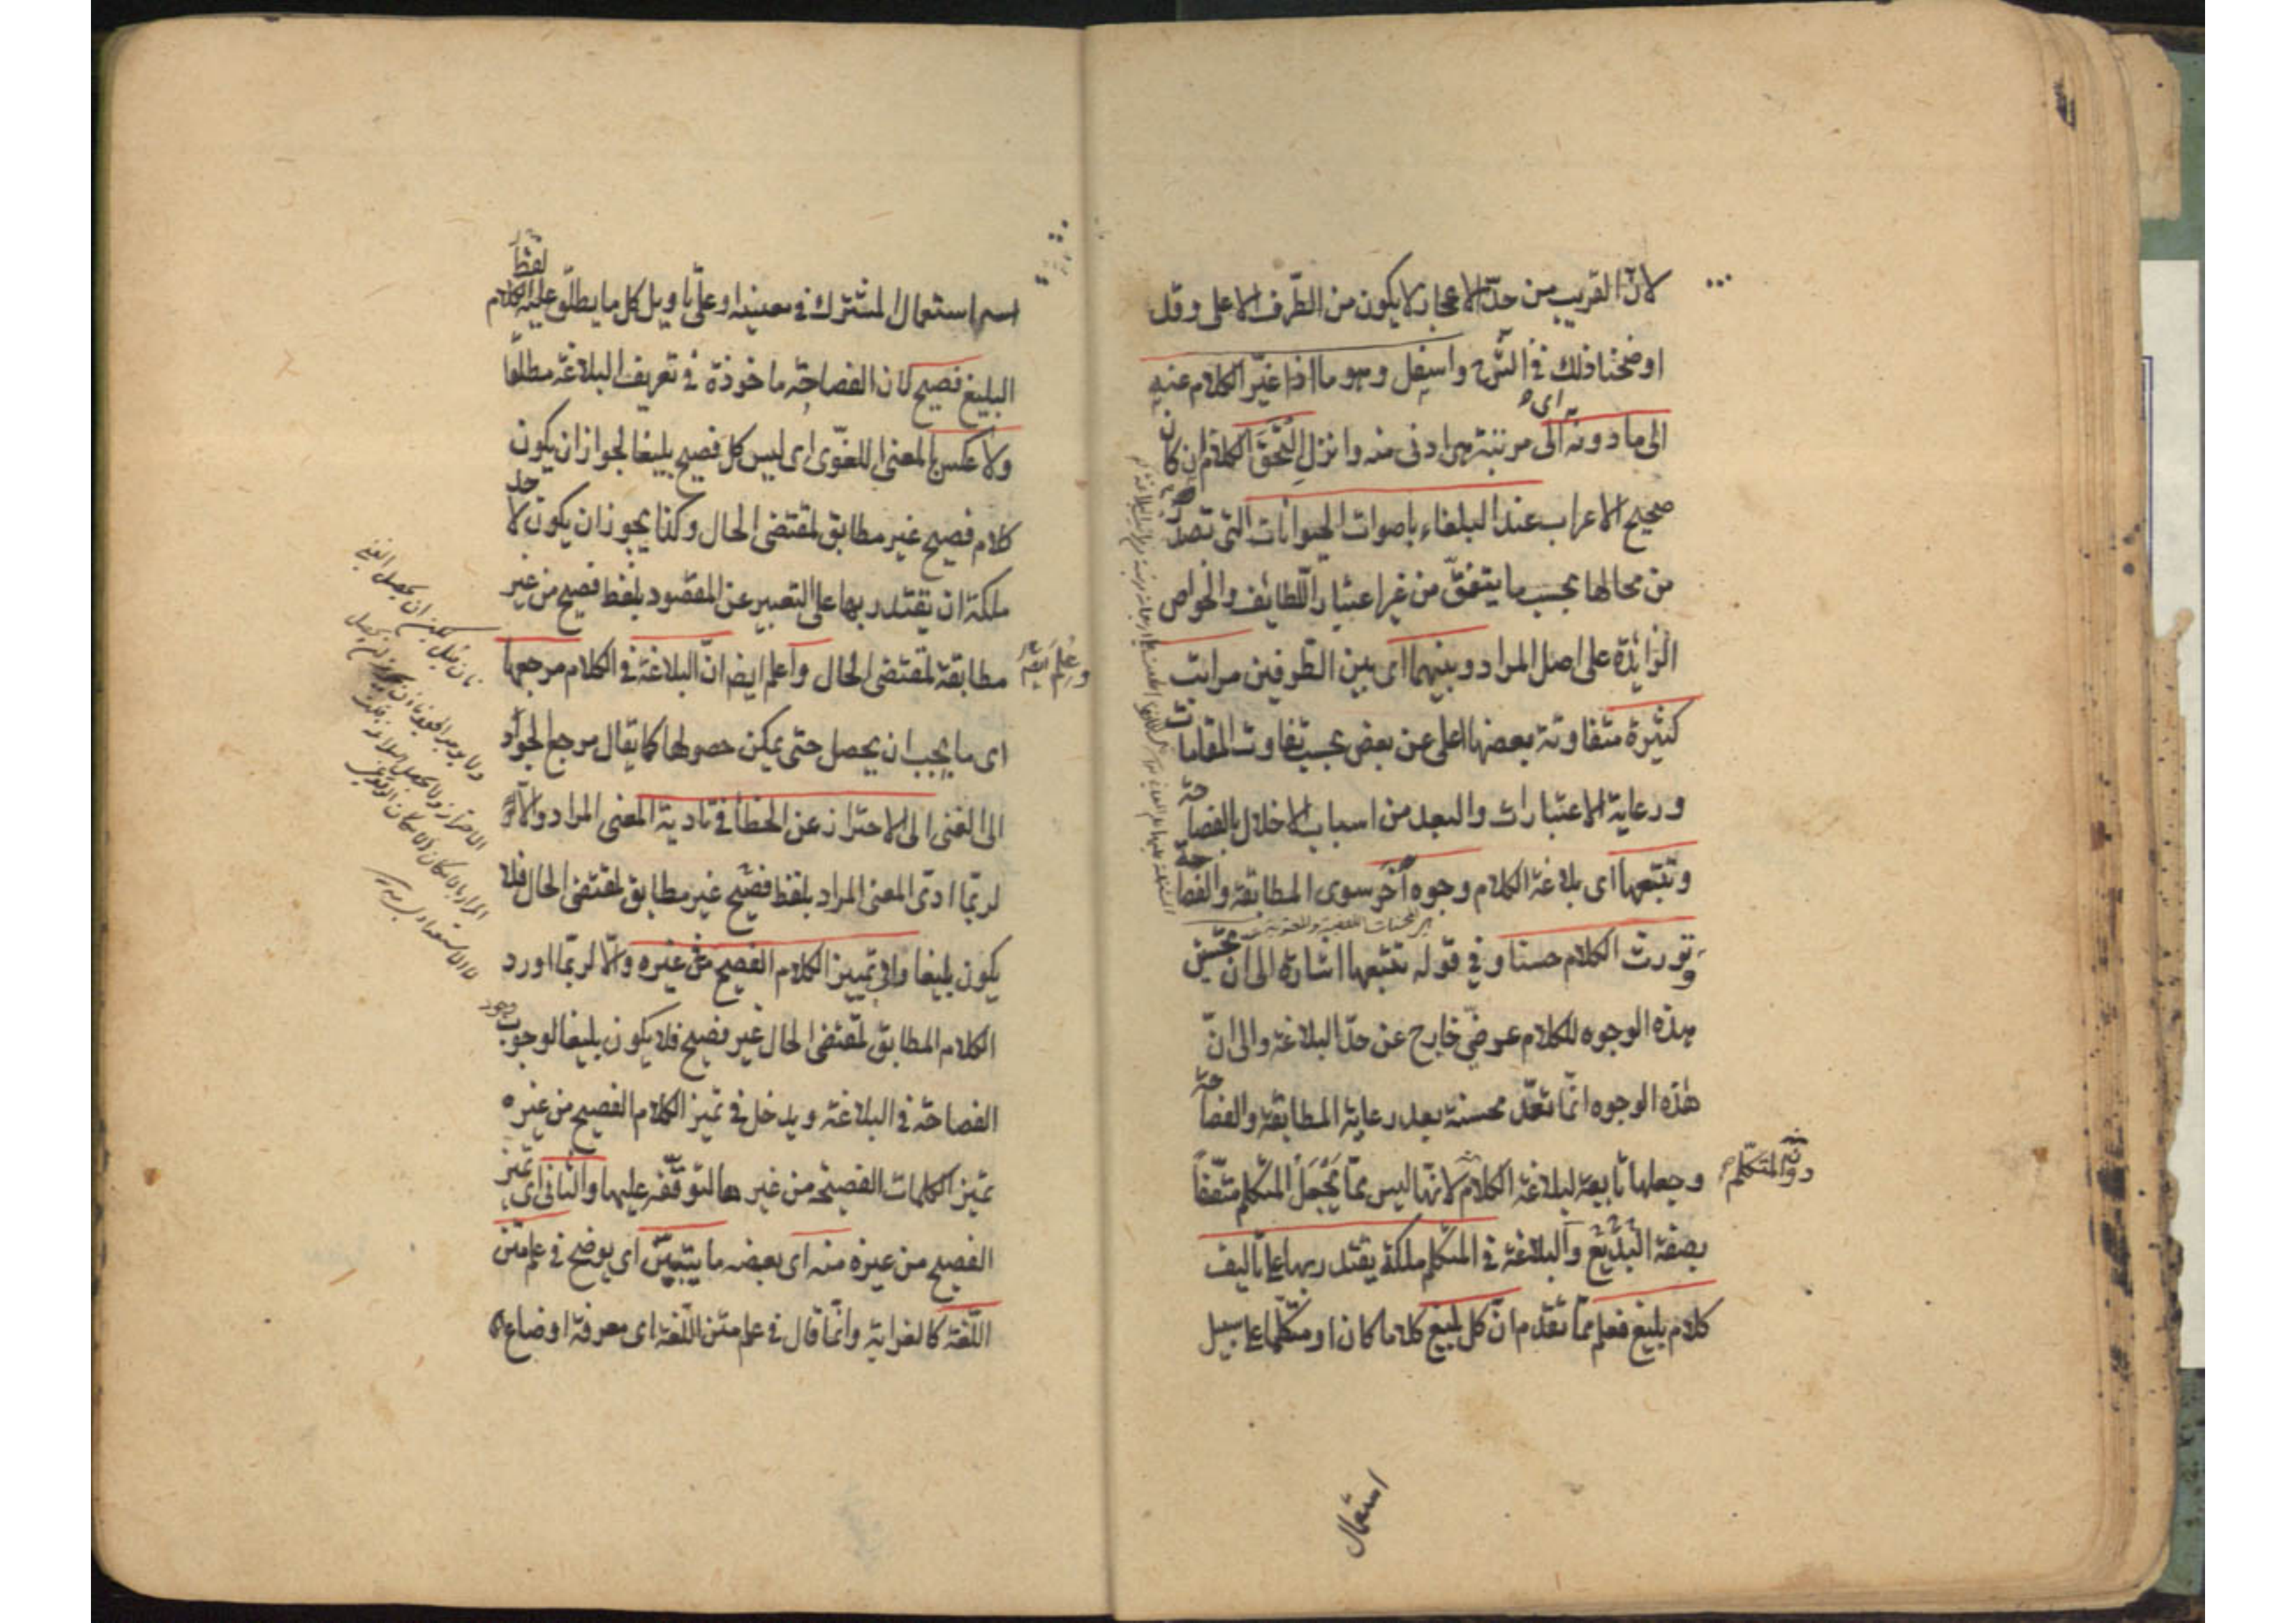 لان القريب من حدّ الاعجاز لا يكون من الطّرف الاعلى وقد
اوضحنا ذلك فى الشّرح واسفل وهو ما اذا غيّر الكلام عنه
الى ما دونه اى الى مرتبة هى ادنى منه وانزل التحق الكلام ان كان
صحيح الاعراب عند البلغاء باصوات الحيوانات التى تصدر
من محالها بحسب ما يتفق من غير اعتبار اللّطائف والخواص
الزايدة على اصل المراد وبينهما اى بين الطرفين مراتب
كثيرة متفاوتة بعضها اعلى من بعض بحسب تفاوت المقامات
ورعاية الاعتبارات والبعد من اسباب الاخلال بالفصاحة
وتتبعها اى بلاغة الكلام وجوه اخر سوى المطابقة والفصاحة
وتورث الكلام حسنا وفى قوله تتبعها اشارة الى ان تحسين
هذه الوجوه للكلام عرضىّ خارج عن حدّ البلاغة والى انّ
هذه الوجوه انّما تعدّ محسنة بعد رعاية المطابقة والفصاحة
وجعلها تابعة لبلاغة الكلام لانها ليس ممّا يجعل المتكلم متّصفا
دون المتكلّم
بصفة البديع والبلاغة فى المتكلم ملكة يقتدر بها على تأليف
كلام بليغ فعلم ممّا تقدّم انّ كل بليغ كلاما كان او متكلّما على سبيل
استعمال
اسم استعمال المشترك فى معنييه او على تأويل كل ما يطلق عليه لفظ
البليغ فصيح لان الفصاحة ماخوذة فى تعريف البلاغة مطلقا
ولا عكس بالمعنى اللغوّى اى ليس كل فصيح بليغا لجواز ان يكون
كلام فصيح غير مطابق لمقتضى الحال وكذا يجوز ان يكون لاحد
ملكة ان يقتدر بها على التعبير عن المقصود بلفظ فصيح من غير
مطابقة لمقتضى الحال واعلم ايض انّ البلاغة فى الكلام مرجعها
اى ما يجب ان يحصل حتى يمكن حصولها كما يقال مرجع الجواد
الى الغنى الى الاحتراز عن الخطأ فى تأدية المعنى المراد والّا
لربّما ادّى المعنى المراد بلفظ فصيح غير مطابق لمقتضى الحال فلا
يكون بليغا والى تمييز الكلام الفصيح من غيره والّا لربّما اورد
الكلام المطابق لمقتضى الحال غير فصيح فلا يكون بليغا لوجوب وجود
الفصاحة فى البلاغة ويدخل فى تميز الكلام الفصيح من غيره
تميز الكلمات الفصيحة من غيرها لتوقفه عليها والثانى اى تميز
الفصيح من غيره منه اى بعضه ما يتبيّن اى يوضح فى علم متن
اللّغة كالغرابة وانّما قال فى علم متن اللّغة اى معرفة اوضاع